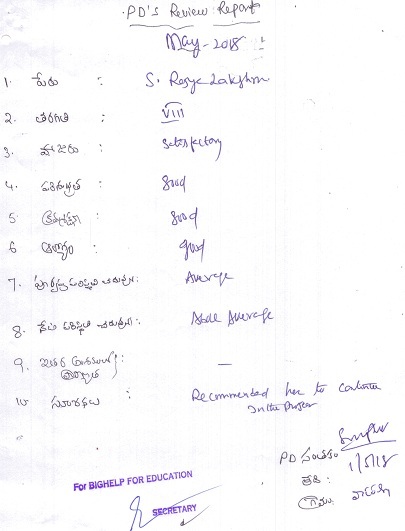 PD'S Review Report
May - 2018
1. పేరు : S.
2. తరగతి : VIII
3. హాజరు : Satisfactory
4. పరిశుభ్రత : Good
5. క్రమశిక్షణ : Good
6. ఆరోగ్యం : good
7. : Average
8. : Above Average
9. ఇతర : —
10. : Recommended her to continue
in the Project
PD సంతకం
తేది : 1/5/18
గ్రామం:
For BIGHELP FOR EDUCATION
SECRETARY